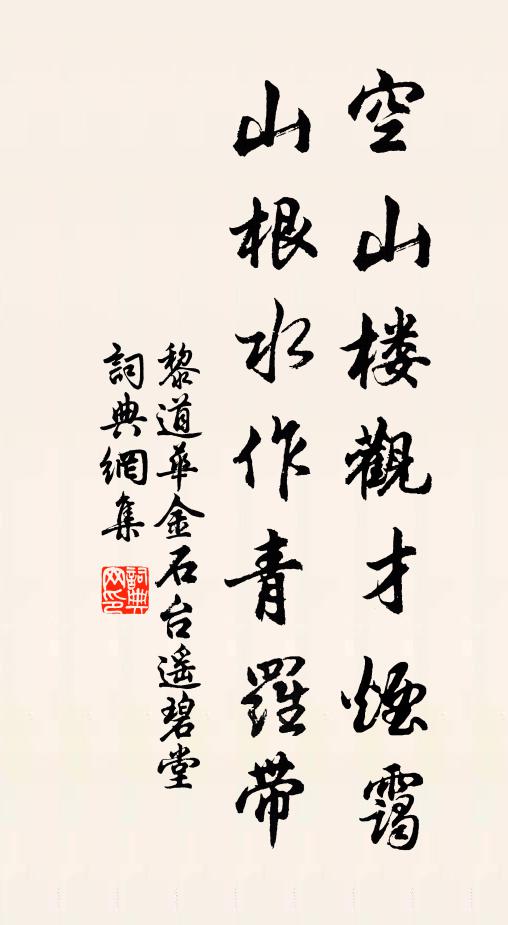 空山楼觀才煙靄
山根水作青羅带
黎道華金石台遥碧堂
詞典網集
詞典网印